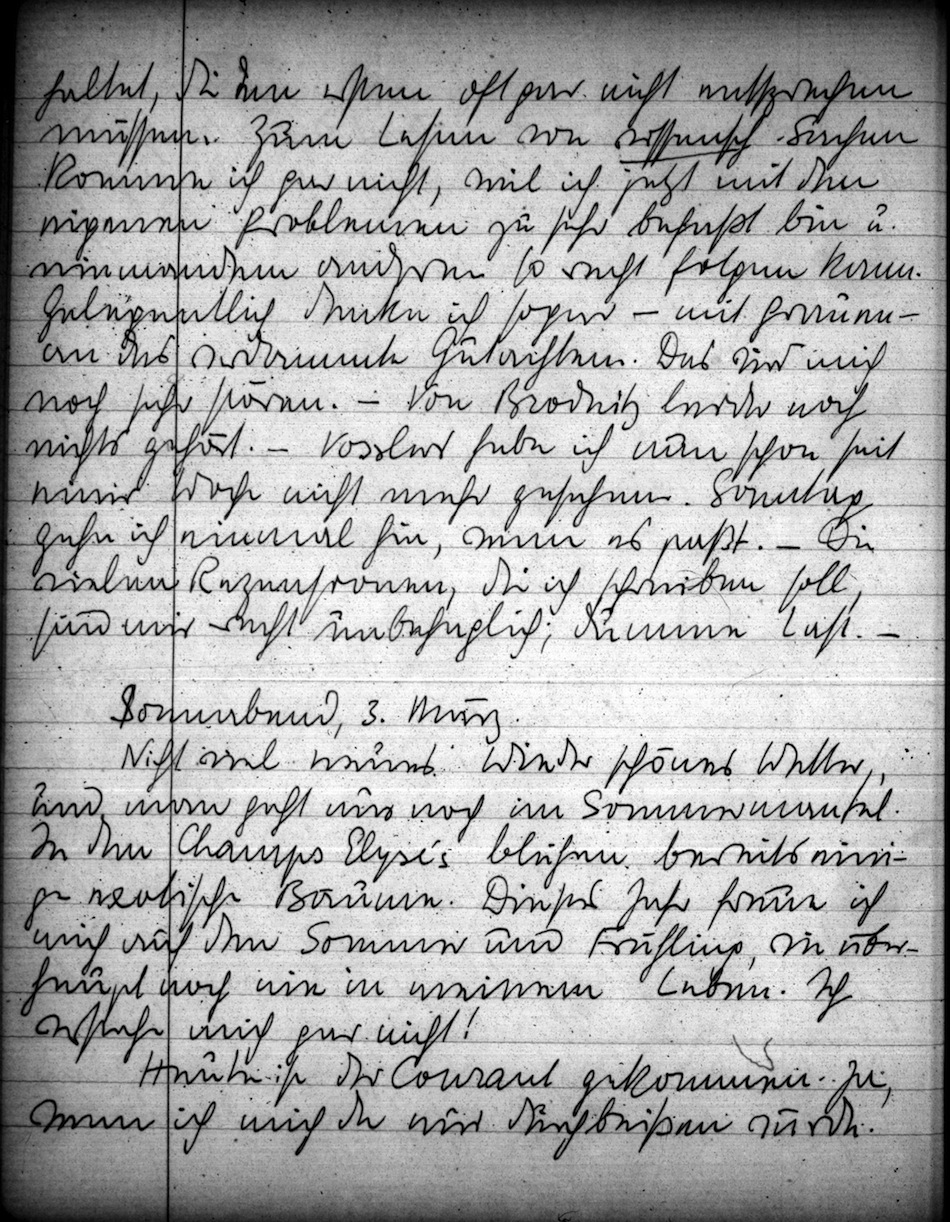 haltet, die dem ersten oft gar nicht entsprechen
müssen. Zum Lesen von wissensch. Sachen
komme ich gar nicht, weil ich jetzt mit den
eigenen Problemen zu sehr befaßt bin u.
niemandem anderen so recht folgen kann.
Gelegentlich denke ich sogar – mit Grauen –
an das verdammte Gutachten. Das wird mich
noch sehr stören. – Von Brodnitz leider noch
nichts gehört. – Vosslers habe ich nun schon seit
einer Woche nicht mehr gesehen. Sonntag
gehe ich einmal hin, wenn es paßt. – Die
vielen Rezensionen, die ich schreiben soll,
sind mir recht unbehaglich; dumme Last. –
Sonnabend, 3. März.
Nicht viel neues. Wieder schönes Wetter,
und man geht nur noch im Sommermantel.
In den Champs Elysées blühen bereits eini-
ge exotische Bäume. Dieses Jahr freue ich
mich auf den Sommer und Frühling, wie über-
haupt noch nie in meinem Leben. Ich
verstehe mich gar nicht!
Heute ist der Courant gekommen. Ja,
wenn ich mich da nur durchbeißen würde.